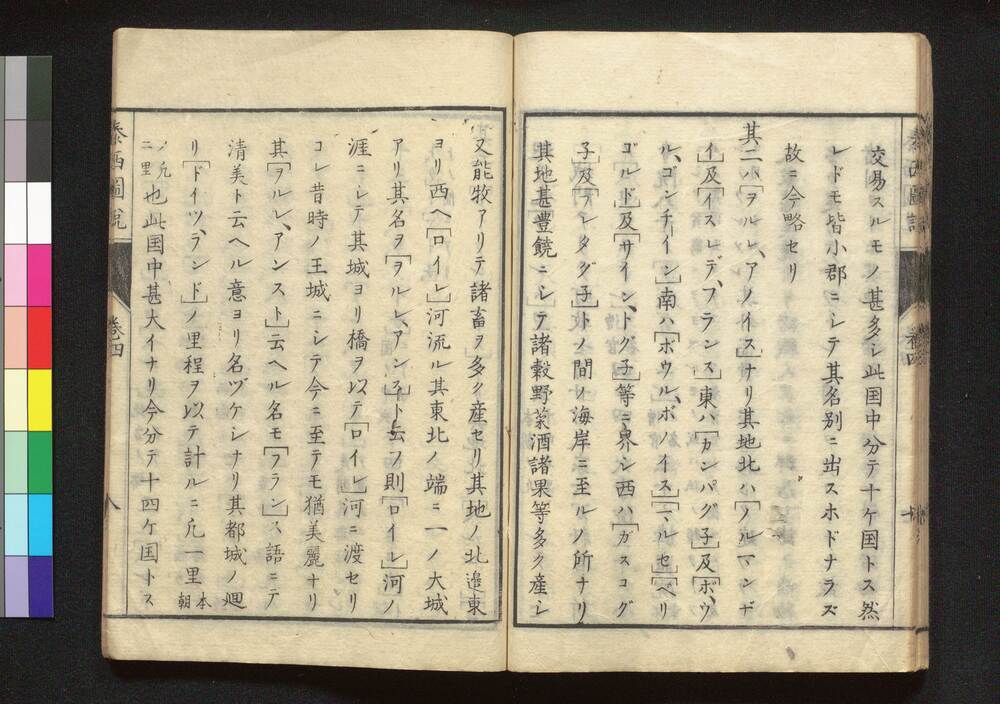 交易スルモノ甚多シ此国中分テ十ケ国トス然
レドモ皆小郡ニシテ其名別ニ出スホドナラズ
故ニ今略セリ
其二ハ「ヲルレ、アノイス」ナリ其地北ハ「ノルマンヂ
イ」及「イスレ、デ、フランス」東ハ「カンパグ子」及「ボ、ウ
ル、ゴンチーイン」南ハ「ボウル、ボノイス」「マルセ」「ペリ
ゴ「ルド」及「サイン、トグ子」等ニ界シ西ハ「ガスコグ
子」及「ブレタグ子」トノ間ノ海岸ニ至ルノ所ナリ
其地甚豊饒ニシテ諸穀野菊酒諸果等多ク産シ
泰西圖説
又能牧アリテ諸畜ヲ多ク産セリ其地ノ北邉東
ヨリ西ヘ「ロイレ」河流ル其東北ノ端ニ一ノ大城
アリ其名ヲ「ヲルレ、アン子」ト云フ則「ロイレ」河ノ
涯ニシテ其城ヨリ橋ヲ以テ「ロイレ」河ニ渡セリ
コレ昔時ノ王城ニシテ今ニ至テモ猶美麗ナリ
其「ヲルレ、アンスト」云ヘル名モ「フランス」語ニテ
清美ト云ヘル意ヨリ名ヅケシナリ其都城ノ廻
リ「ドイツ、ランド」ノ里程ヲ以テ計ルニ凡一里本朝
ノ凡二里也此国中甚大イナリ今分テ十四ケ国トス
泰西圖説
巻四
八